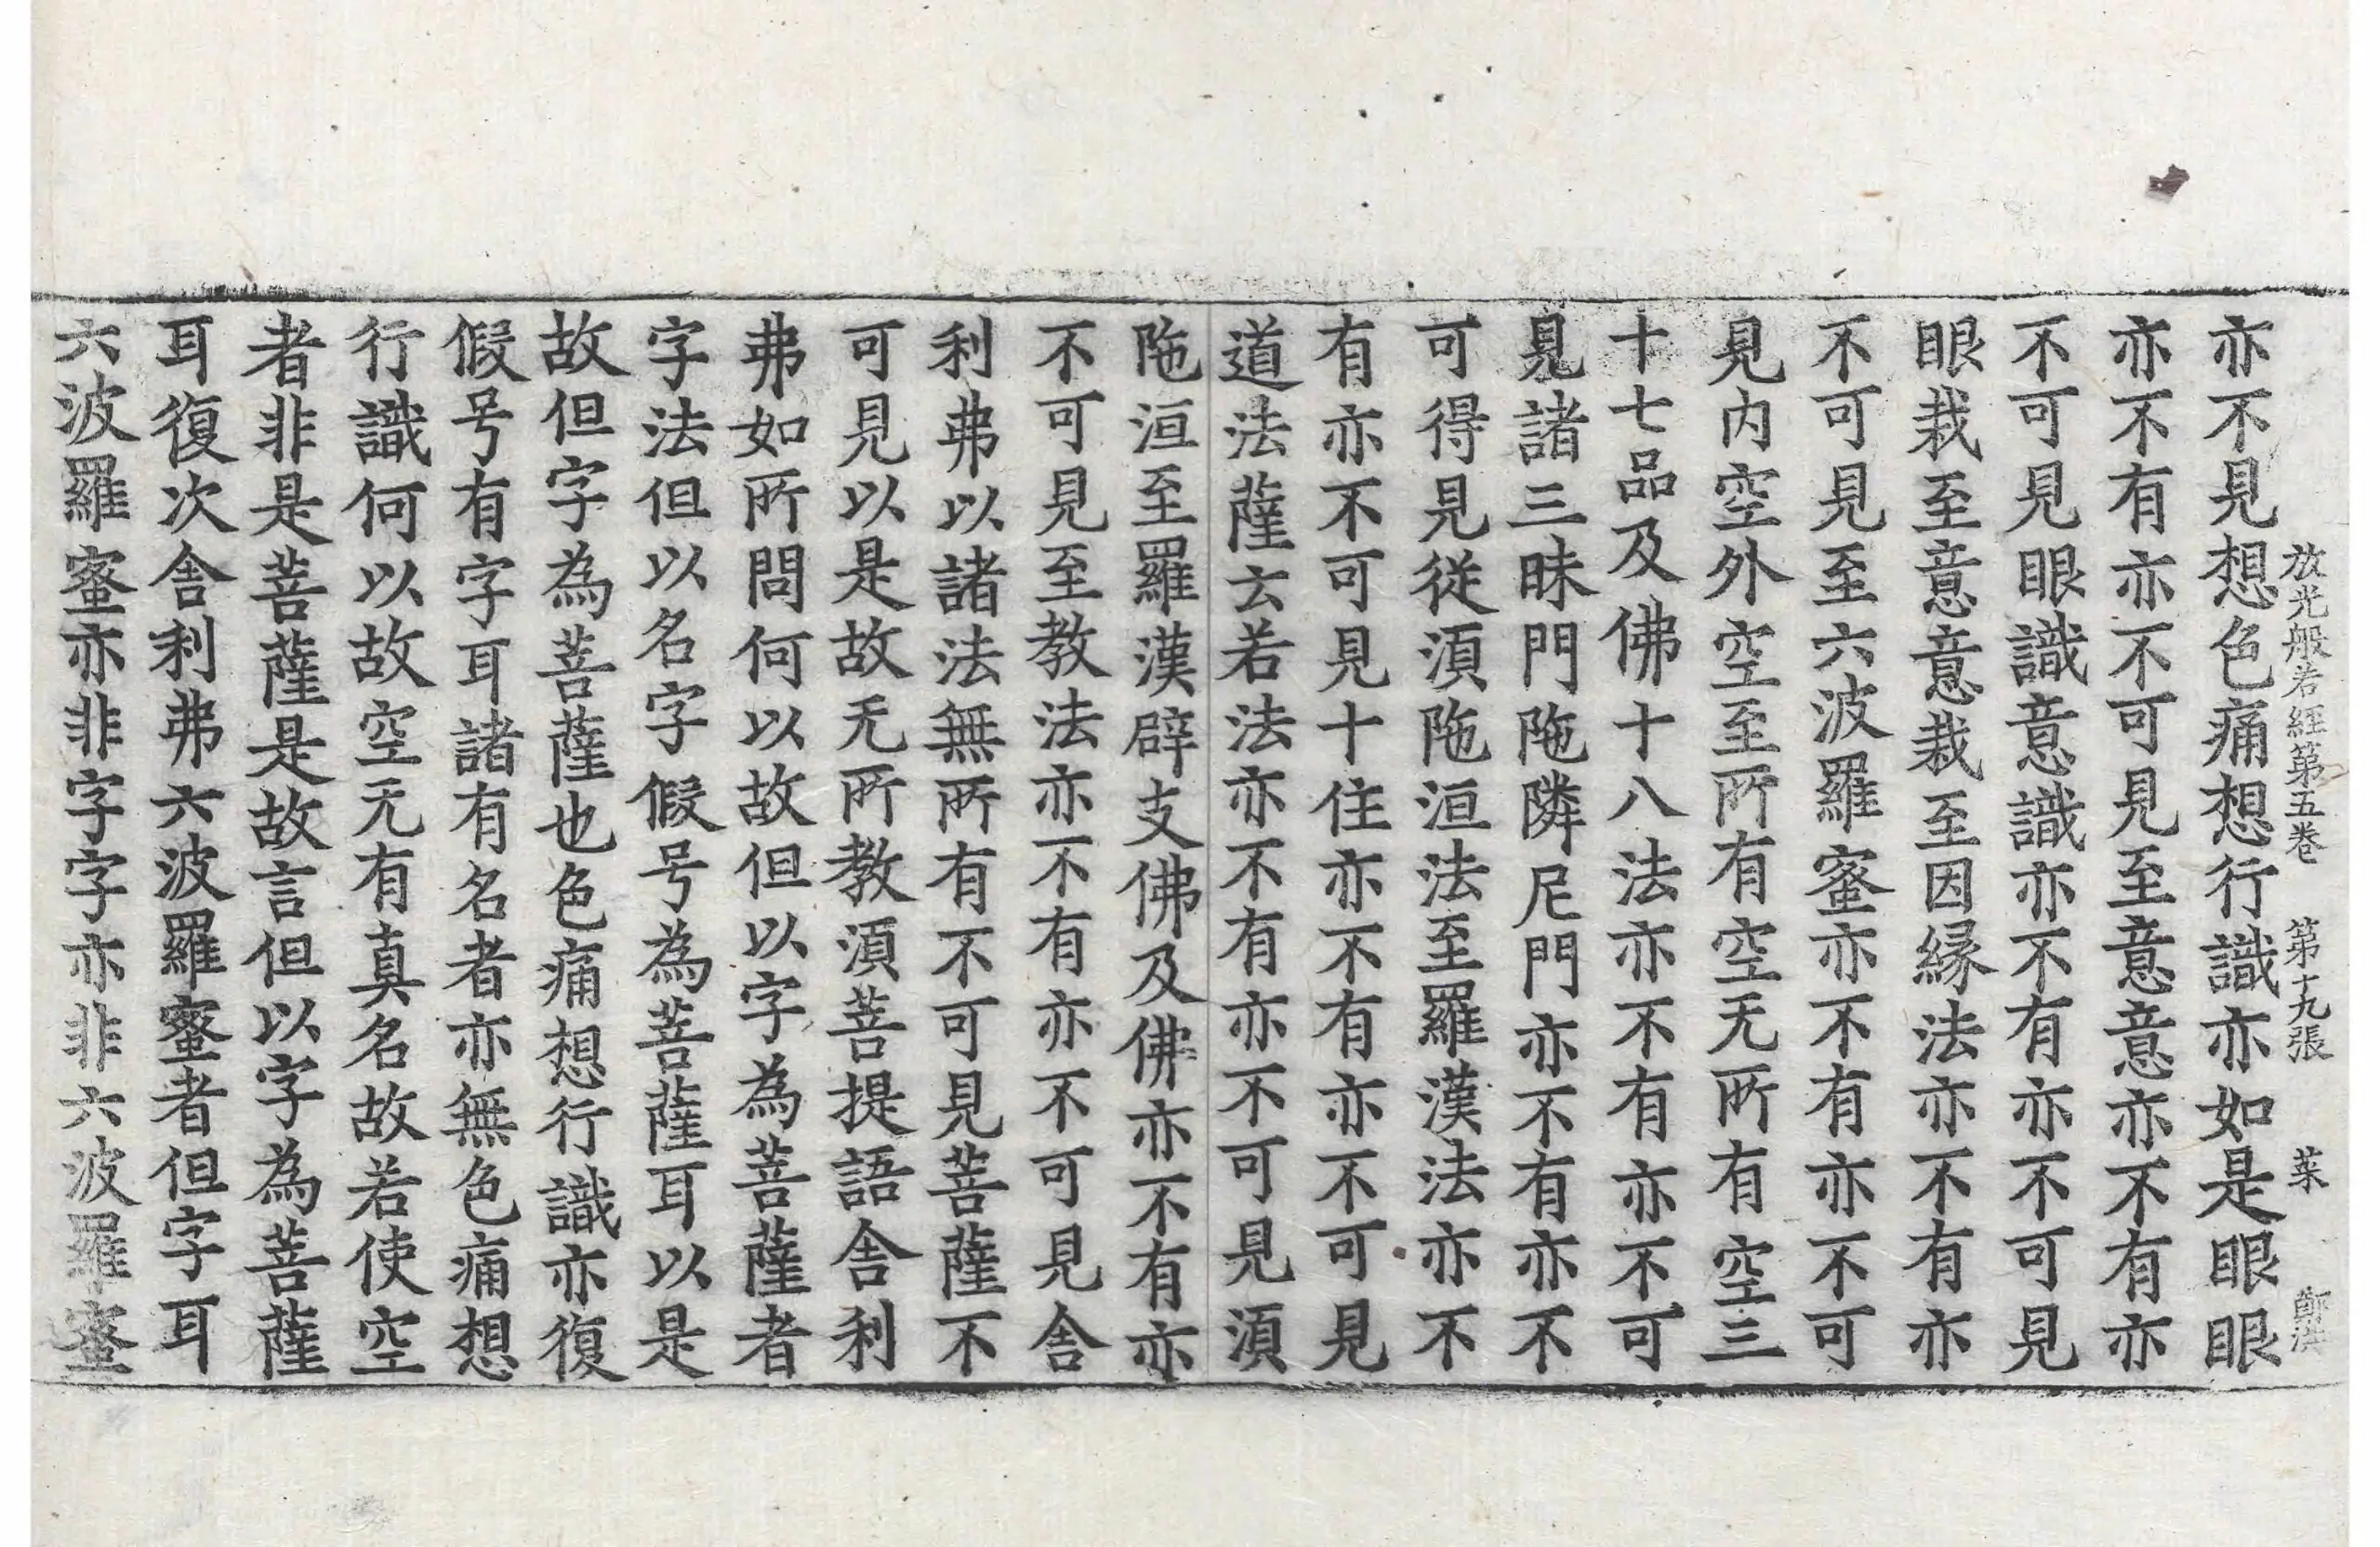 放光般若經第五卷 第十九張 菜
亦不見想色痛想行識亦如是眼眼
亦不有亦不可見至意意亦不有亦
不可見眼識意識亦不有亦不可見
眼栽至意意栽至因緣法亦不有亦
不可見至六波羅蜜亦不有亦不可
見内空外空至所有空无所有空三
十七品及佛十八法亦不有亦不可
見諸三昧門陁隣尼門亦不有亦不
可得見從湏陁洹法至羅漢法亦不
有亦不可見十住亦不有亦不可見
道法薩云若法亦不有亦不可見湏
陁洹至羅漢辟支佛及佛亦不有亦
不可見至教法亦不有亦不可見舍
利弗以諸法無所有不可見菩薩不
可見以是故无所教湏菩提語舍利
弗如所問何以故但以字為菩薩者
字法但以名字假号為菩薩耳以是
故但字為菩薩也色痛想行識亦復
假号有字耳諸有名者亦無色痛想
行識何以故空无有真名故若使空
者非是菩薩是故言但以字為菩薩
耳復次舍利弗六波羅蜜者但字耳
六波羅蜜亦非字字亦非六波羅蜜